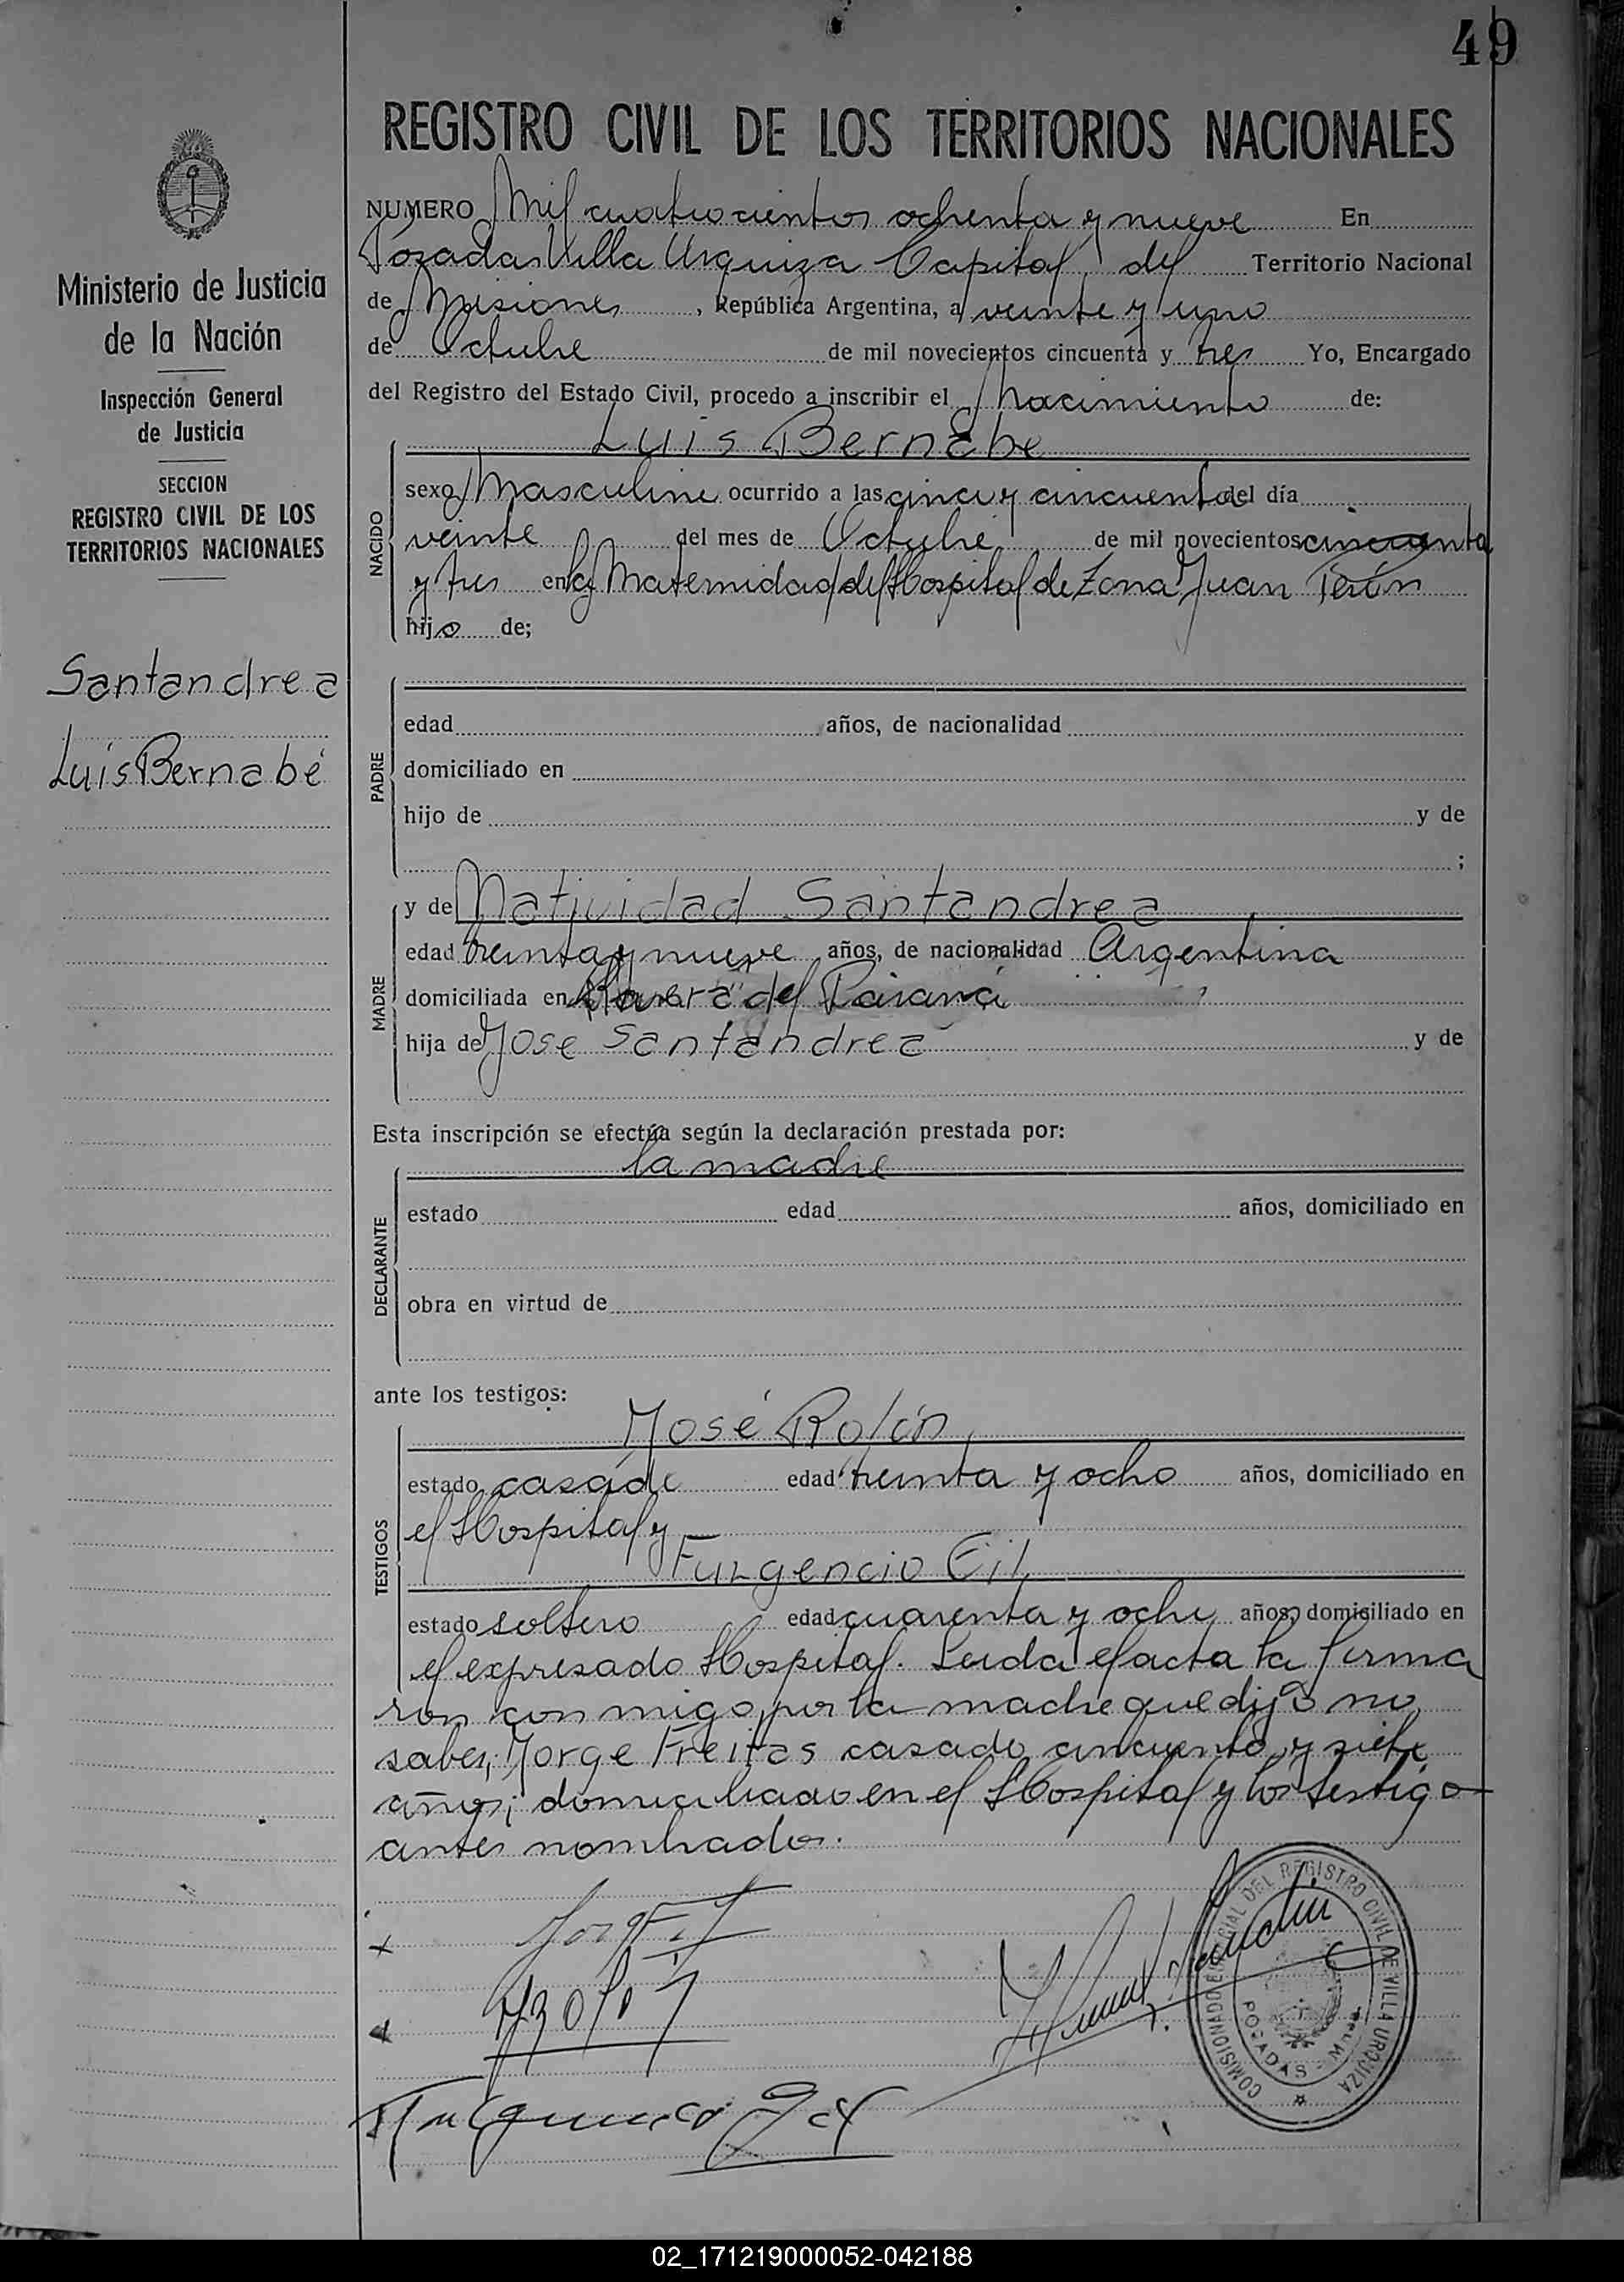 49
REGISTRO CIVIL DE LOS TERRITORIOS NACIONALES
Ministerio de Justicia
de la Nación
Inspección General
de Justicia
SECCION
REGISTRO CIVIL DE LOS
TERRITORIOS NACIONALES
Santandrea
Luis Bernabé
NUMERO Mil cuatrocientos ochenta y nueve En
Posadas Villa Urquiza Capital del Territorio Nacional
de Misiones, República Argentina, a veinte y uno
de Octubre de mil novecientos cincuenta y tres Yo, Encargado
del Registro del Estado Civil, procedo a inscribir el Nacimiento de:
Luis Bernabe
NACIDO
sexo Masculino ocurrido a las cinco y cincuenta del día
veinte del mes de Octubre de mil novecientos cincuenta
y tres en la Maternidad del Hospital de Zona Juan Perón
hijo de;
PADRE
edad años, de nacionalidad
domiciliado en
hijo de y de
;
MADRE
y de Natividad Santandrea
edad treinta y nueve años, de nacionalidad Argentina
domiciliada en del Paraná
hija de Jose Santandrea y de
Esta inscripción se efectúa según la declaración prestada por:
la madre
DECLARANTE
estado edad años, domiciliado en
obra en virtud de
ante los testigos:
TESTIGOS
José Rolón
estado casado edad treinta y ocho años, domiciliado en
el Hospital y
Fulgencio Gil
estado soltero edad cuarenta y ocho años, domiciliado en
el expresado Hospital. Leida el acta la firma
ron con migo, por la madre que dijo no
saber, Jorge Freitas casado cincuenta y siete
años, domiciliado en el Hospital y los testigo
antes nombrados.
COMISIONADO ESPECIAL DEL REGISTRO CIVIL DE VILLA URQUIZA
POSADAS - Mnes
02_171219000052-042188